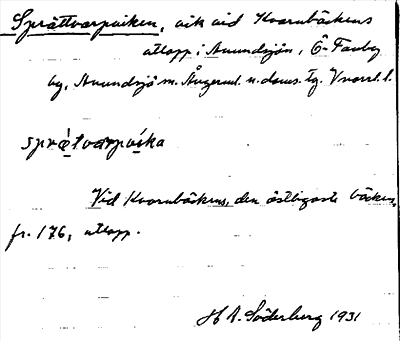 Sprättvarpviken, vik vid Kvarnbäckens
utlopp i Anundsjön, Ö-Fanby
by, Anundsjö sn. Ångerml. n. doms. tg. Vnorrl. l.
sprǽtvarpvíka
Vid Kvarnbäckens, den östligaste bäcken,
fr. 176, utlopp.
H A. Söderberg 1931